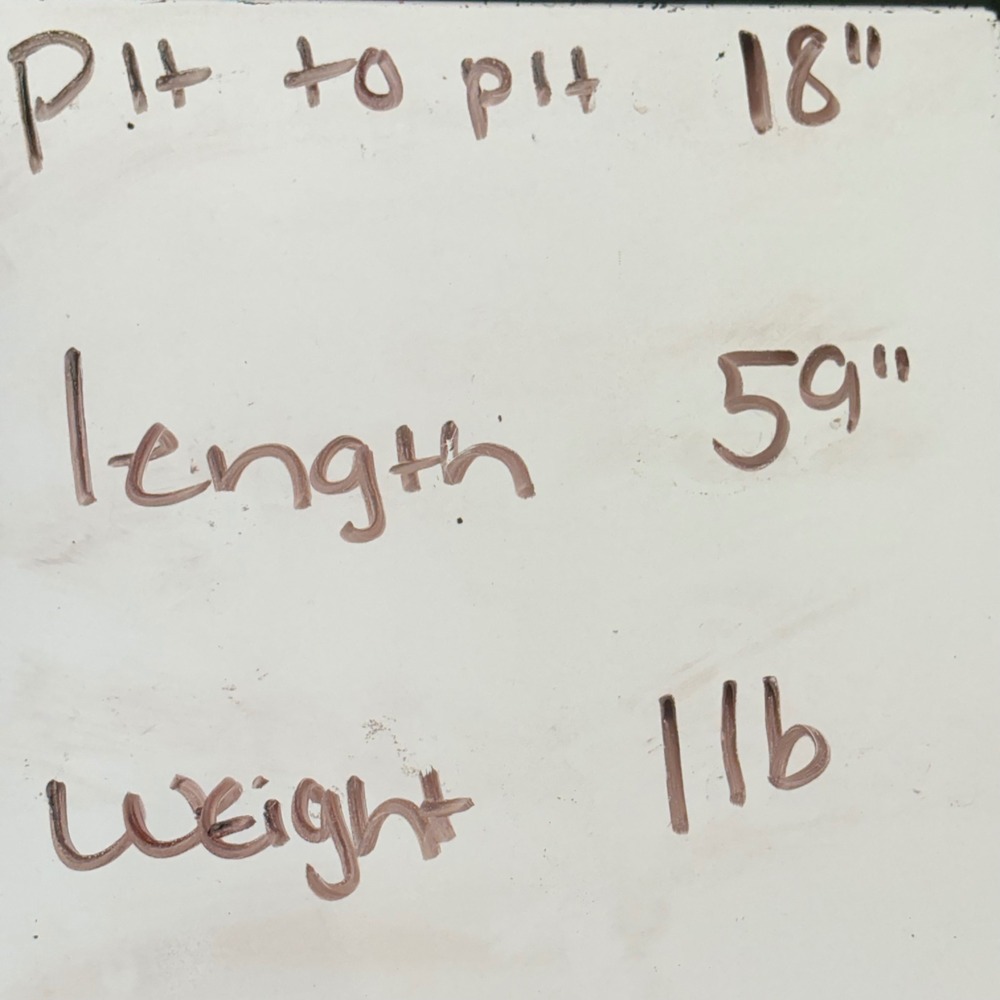 Pit to pit 18"
length 59"
weight 1 lb